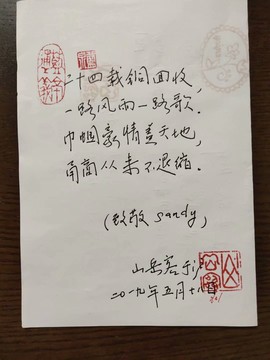 二十四载铜回收,
一路风雨一路歌.
巾帼豪情盖天地,
甬商从来不退缩.
(致敬 Sandy)
山岳客于沪
二〇一九年五月十八日